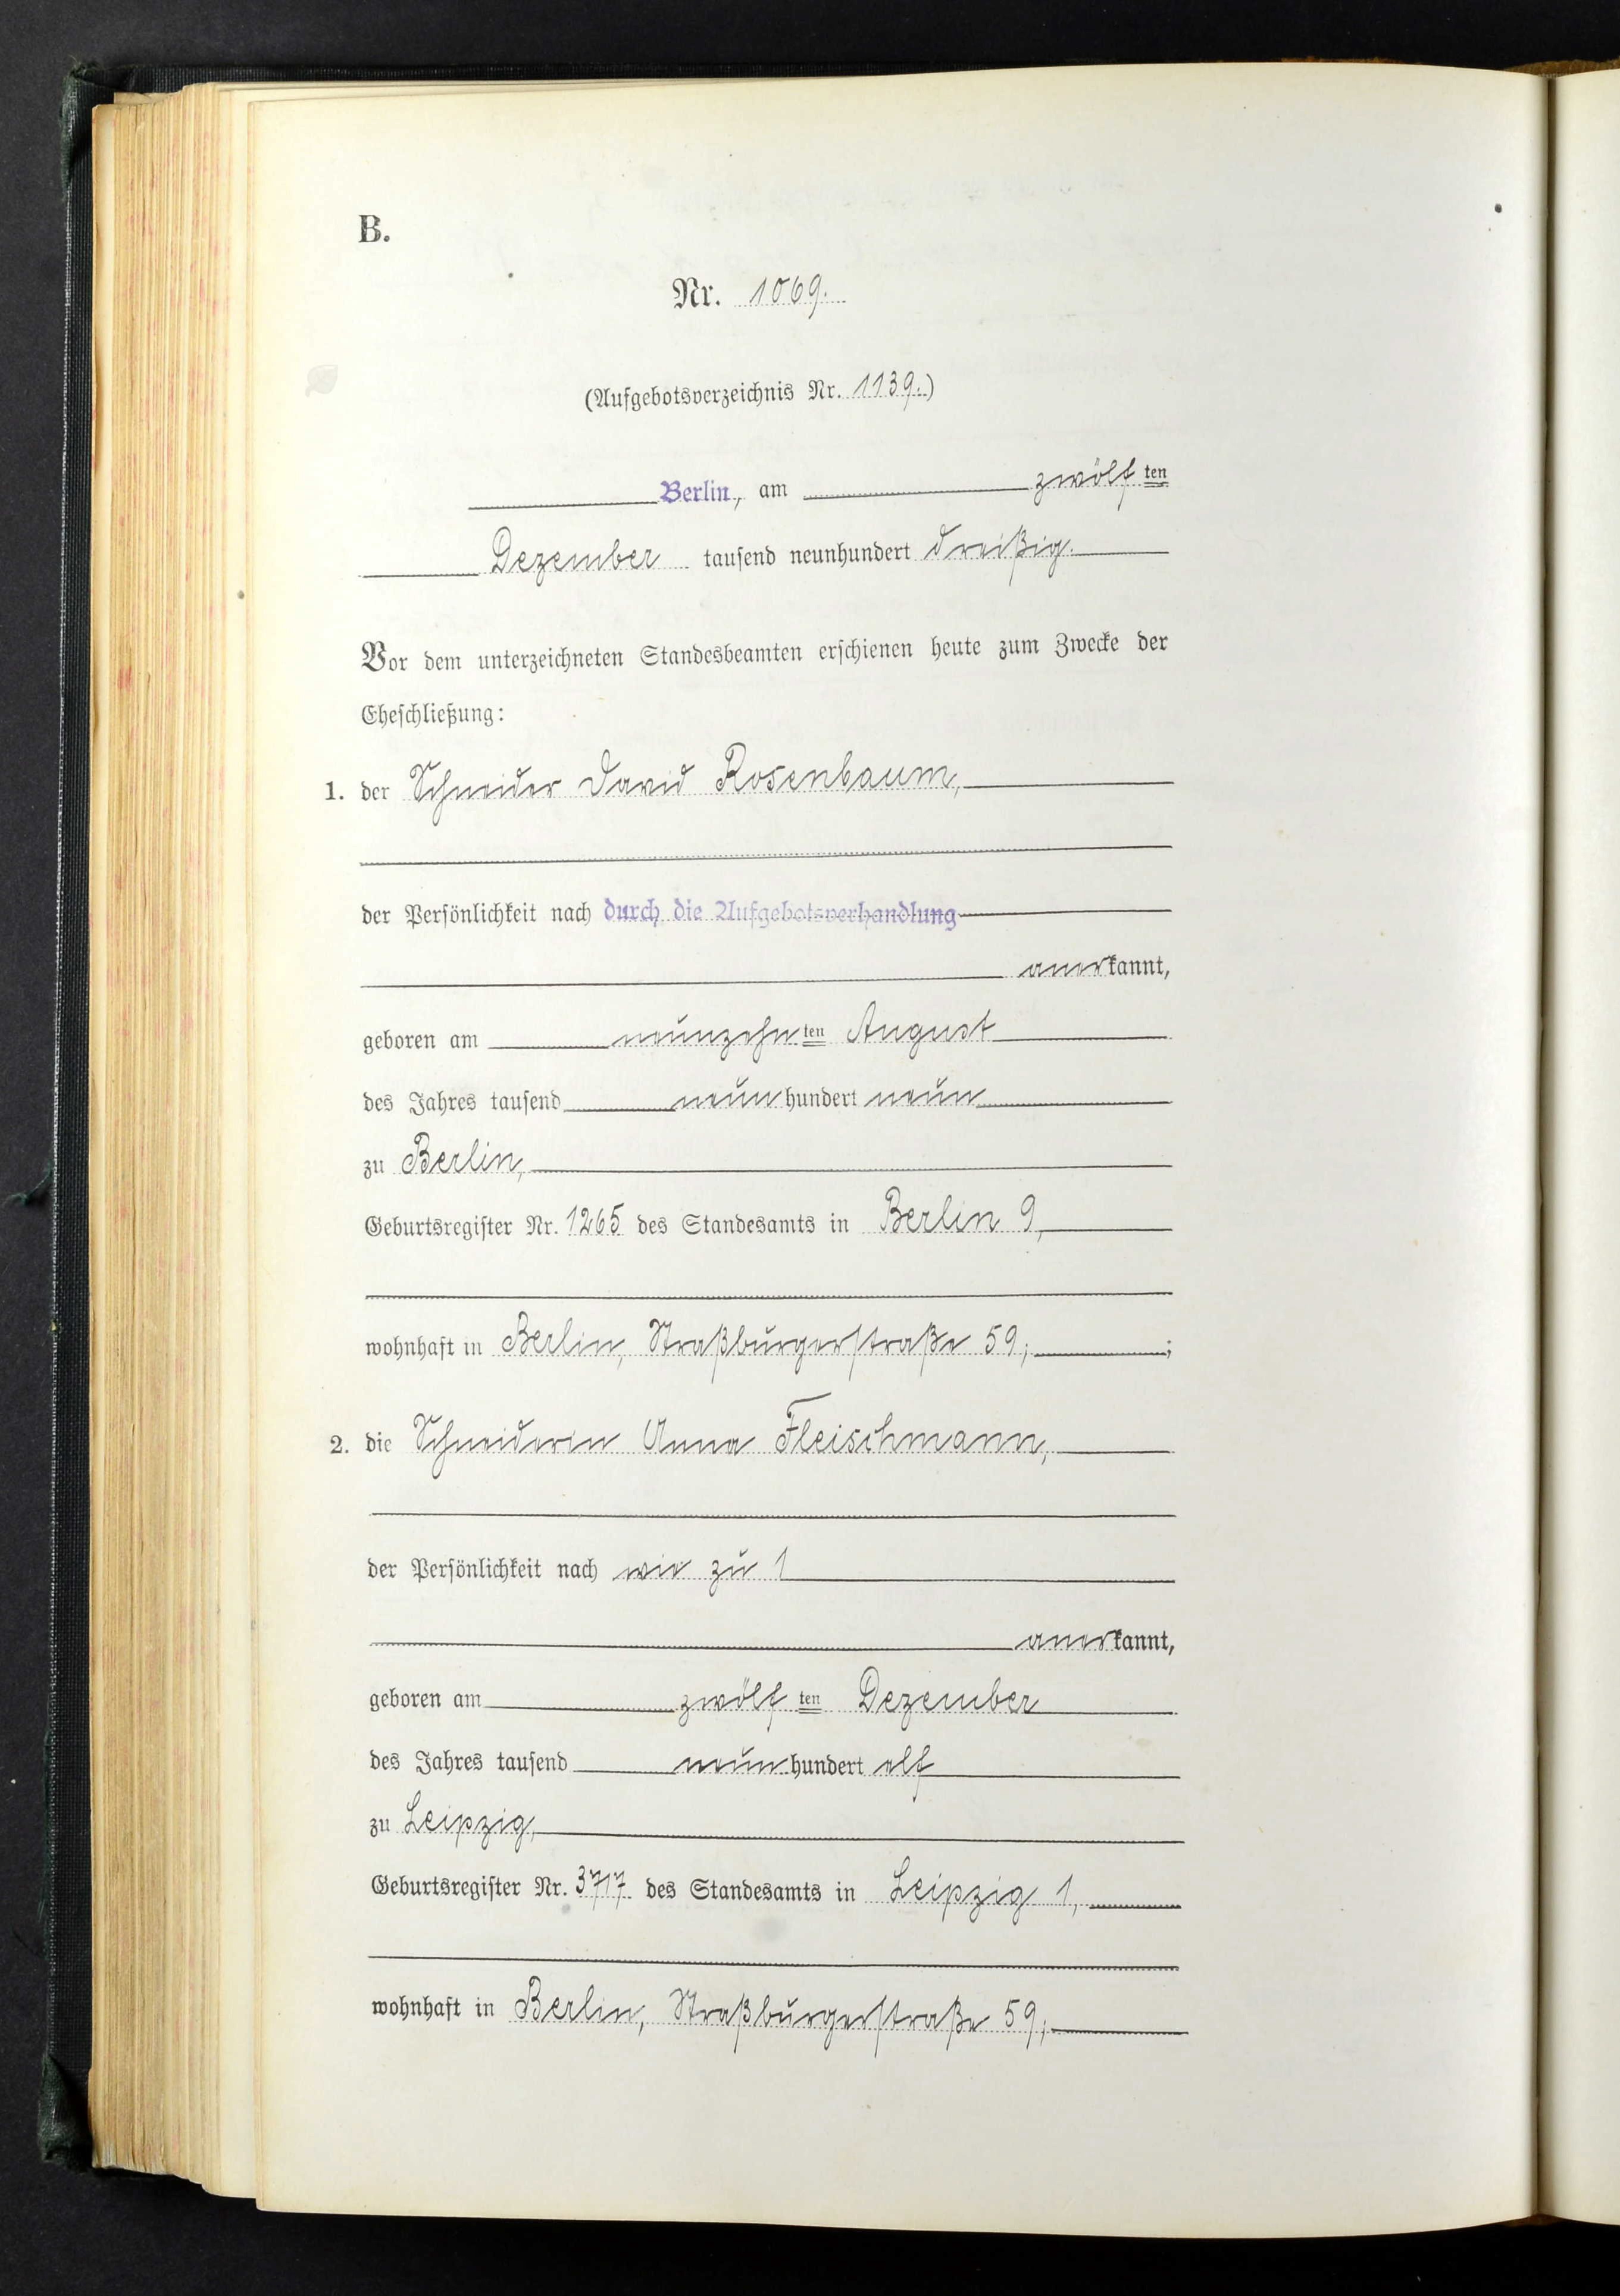 B.
Nr. 1069.
(Aufgebotsverzeichnis Nr. 1139.)
Berlin, am zwölf ten
Dezember tausend neunhundert dreißig.
Vor dem unterzeichneten Standesbeamten erschienen heute zum Zwecke der
Eheschließung:
1. der Schneider David Rosenbaum,
der Persönlichkeit nach durch die Aufgebotsverhandlung
anerkannt,
geboren am neunzehn ten August
des Jahres tausend neunhundert neun
zu Berlin,
Geburtsregister Nr. 1265 des Standesamts in Berlin 9,
wohnhaft in Berlin, Straßburgerstraße 59; ;
2. die Schneiderin Anna Fleischmann,
der Persönlichkeit nach wie zu 1
anerkannt,
geboren am zwölf ten Dezember
des Jahres tausend neunhundert elf
zu Leipzig,
Geburtsregister Nr. 3717 des Standesamts in Leipzig 1,
wohnhaft in Berlin, Straßburgerstraße 59;